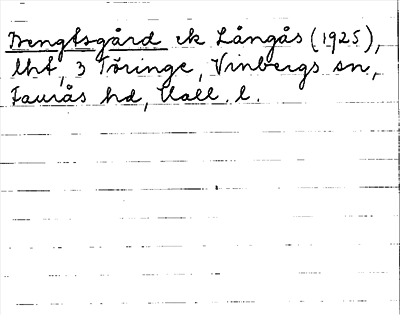 Bengtsgård ek Långås (1925),
lht, 3 Töringe, Vinbergs sn,
Faurås hd, Hall. l.